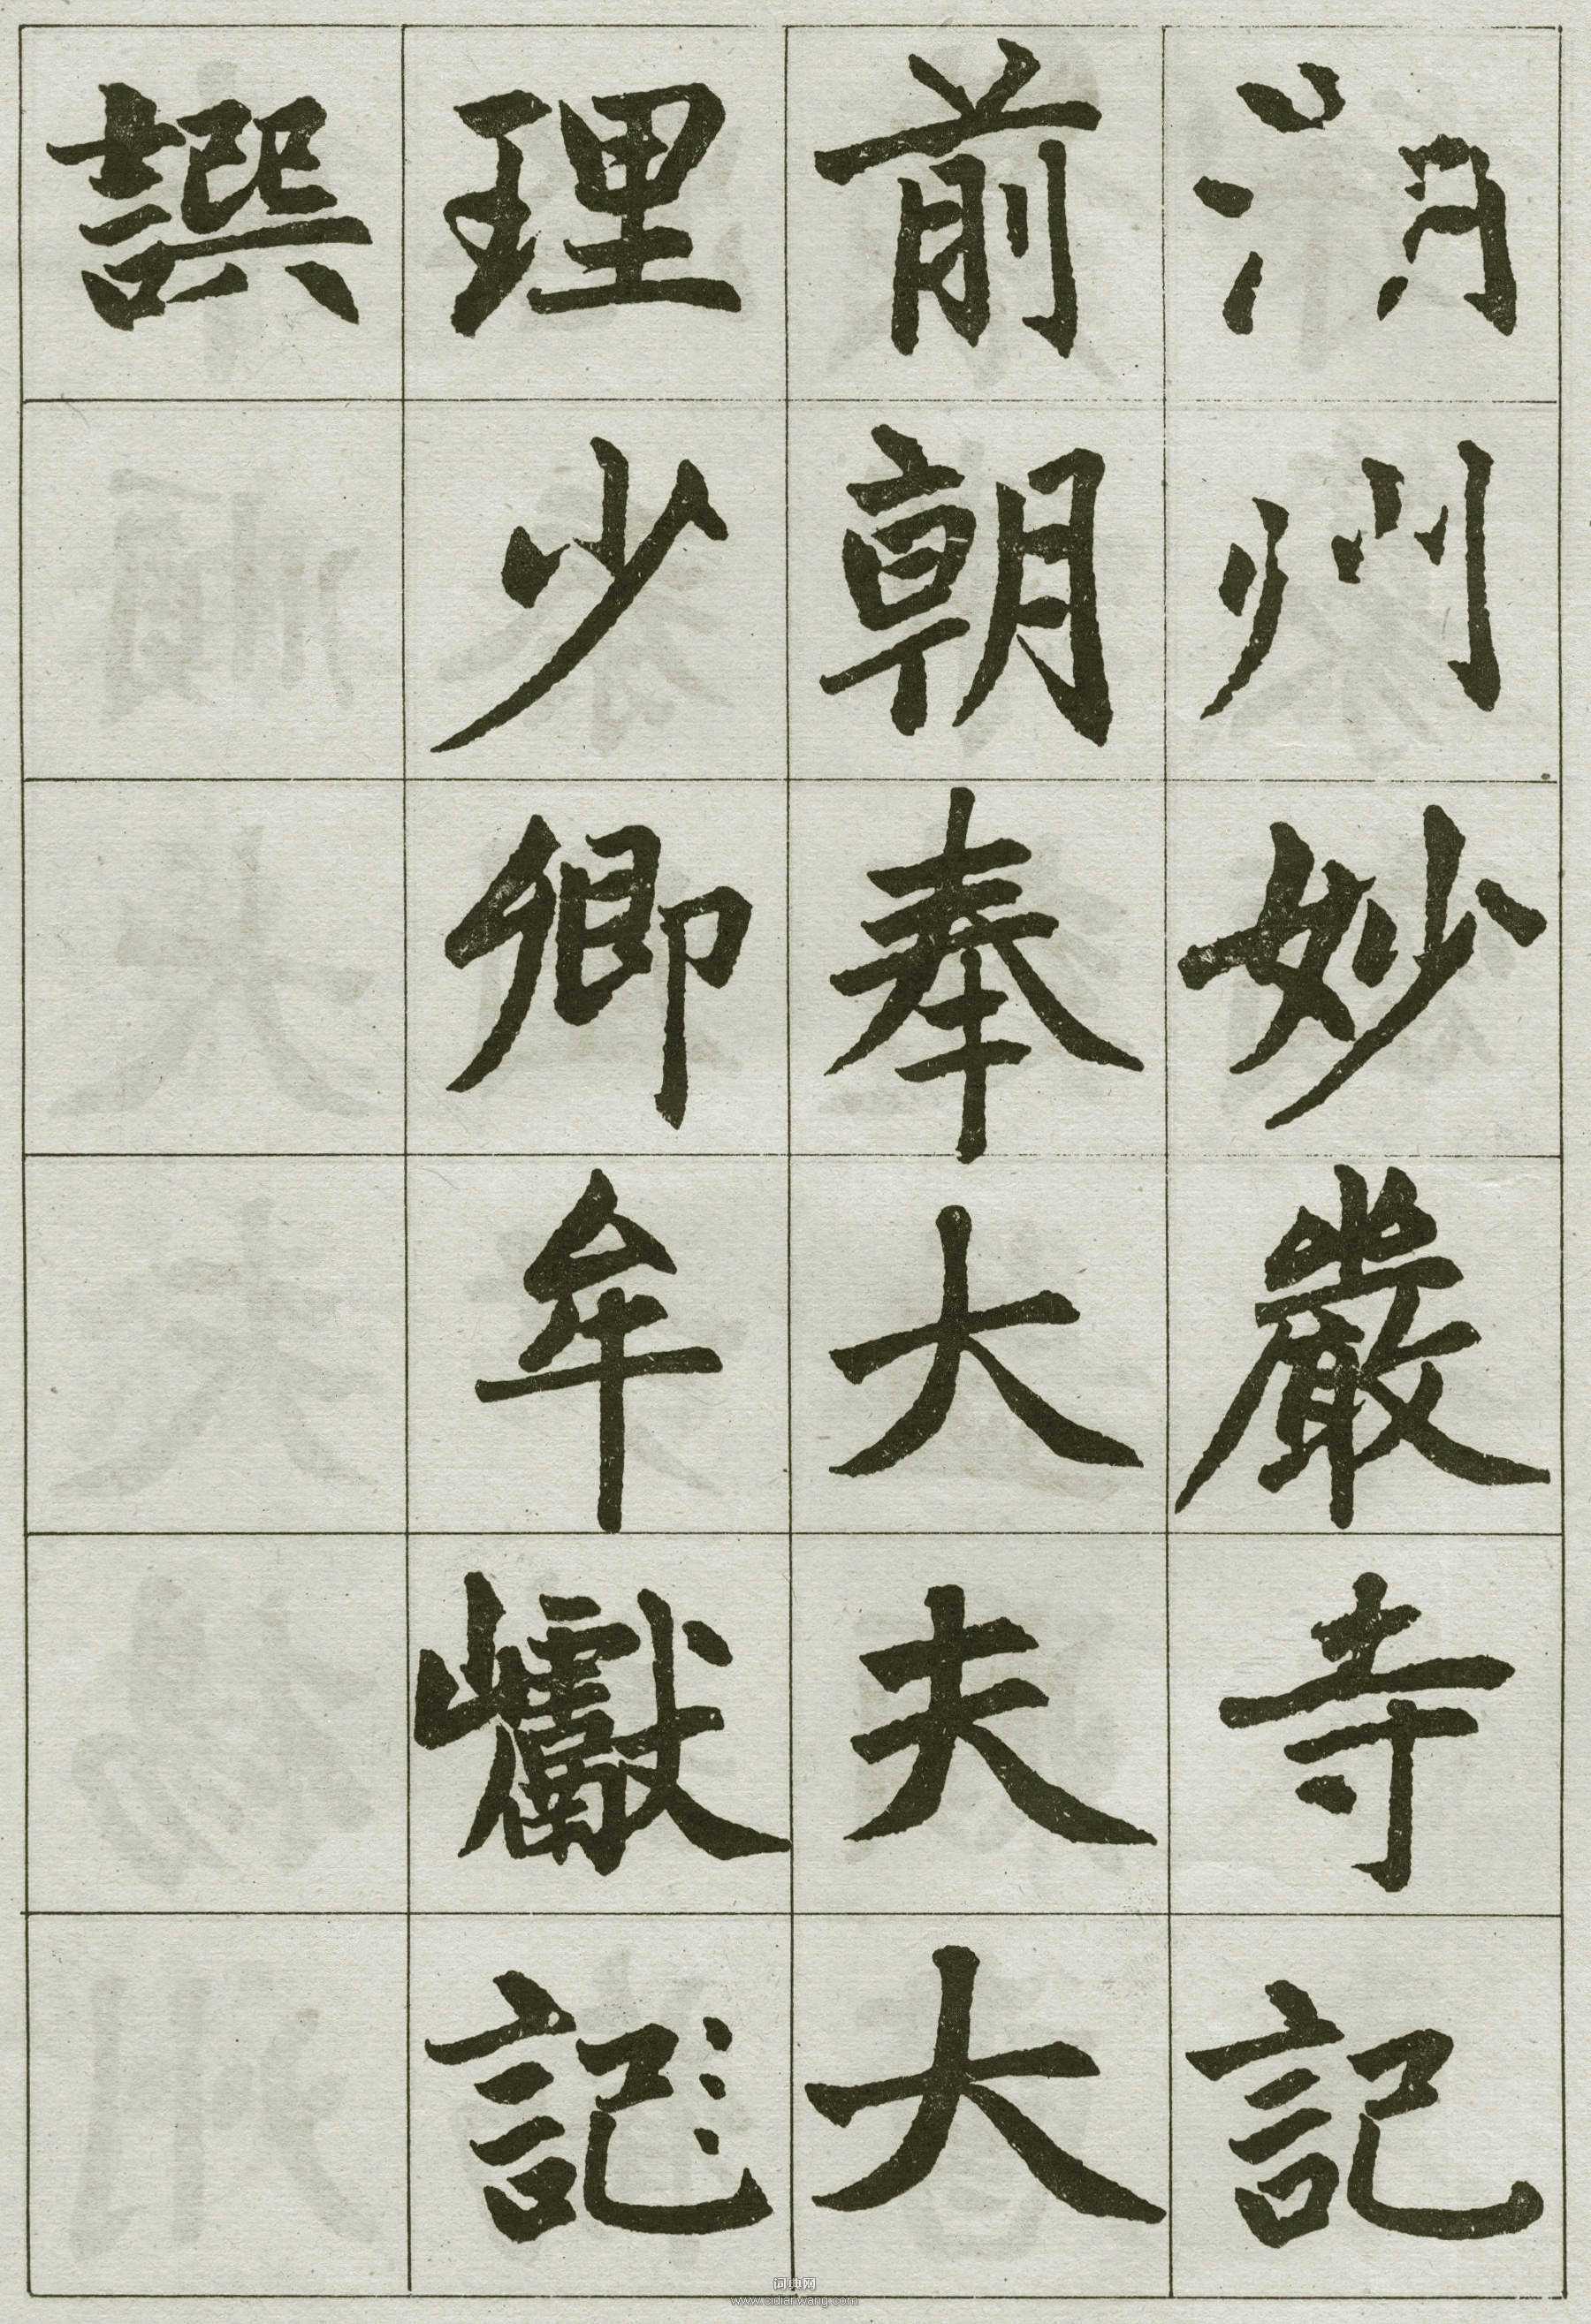 湖州妙嚴寺記
前朝奉大夫大
理少卿牟巘記
譔
词典网
www.cidianwang.com